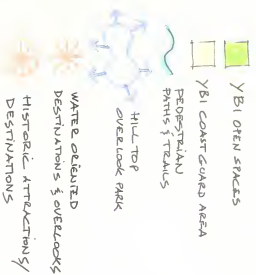 YBI OPEN SPACES
YBI COAST GUARD AREA
PEDESTRIAN
PATHS & TRAILS
HILLTOP
OVERLOOK PARK
WATER ORIENTED
DESTINATIONS & OVERLOOKS
HISTORIC ATTRACTIONS/
DESTINATIONS